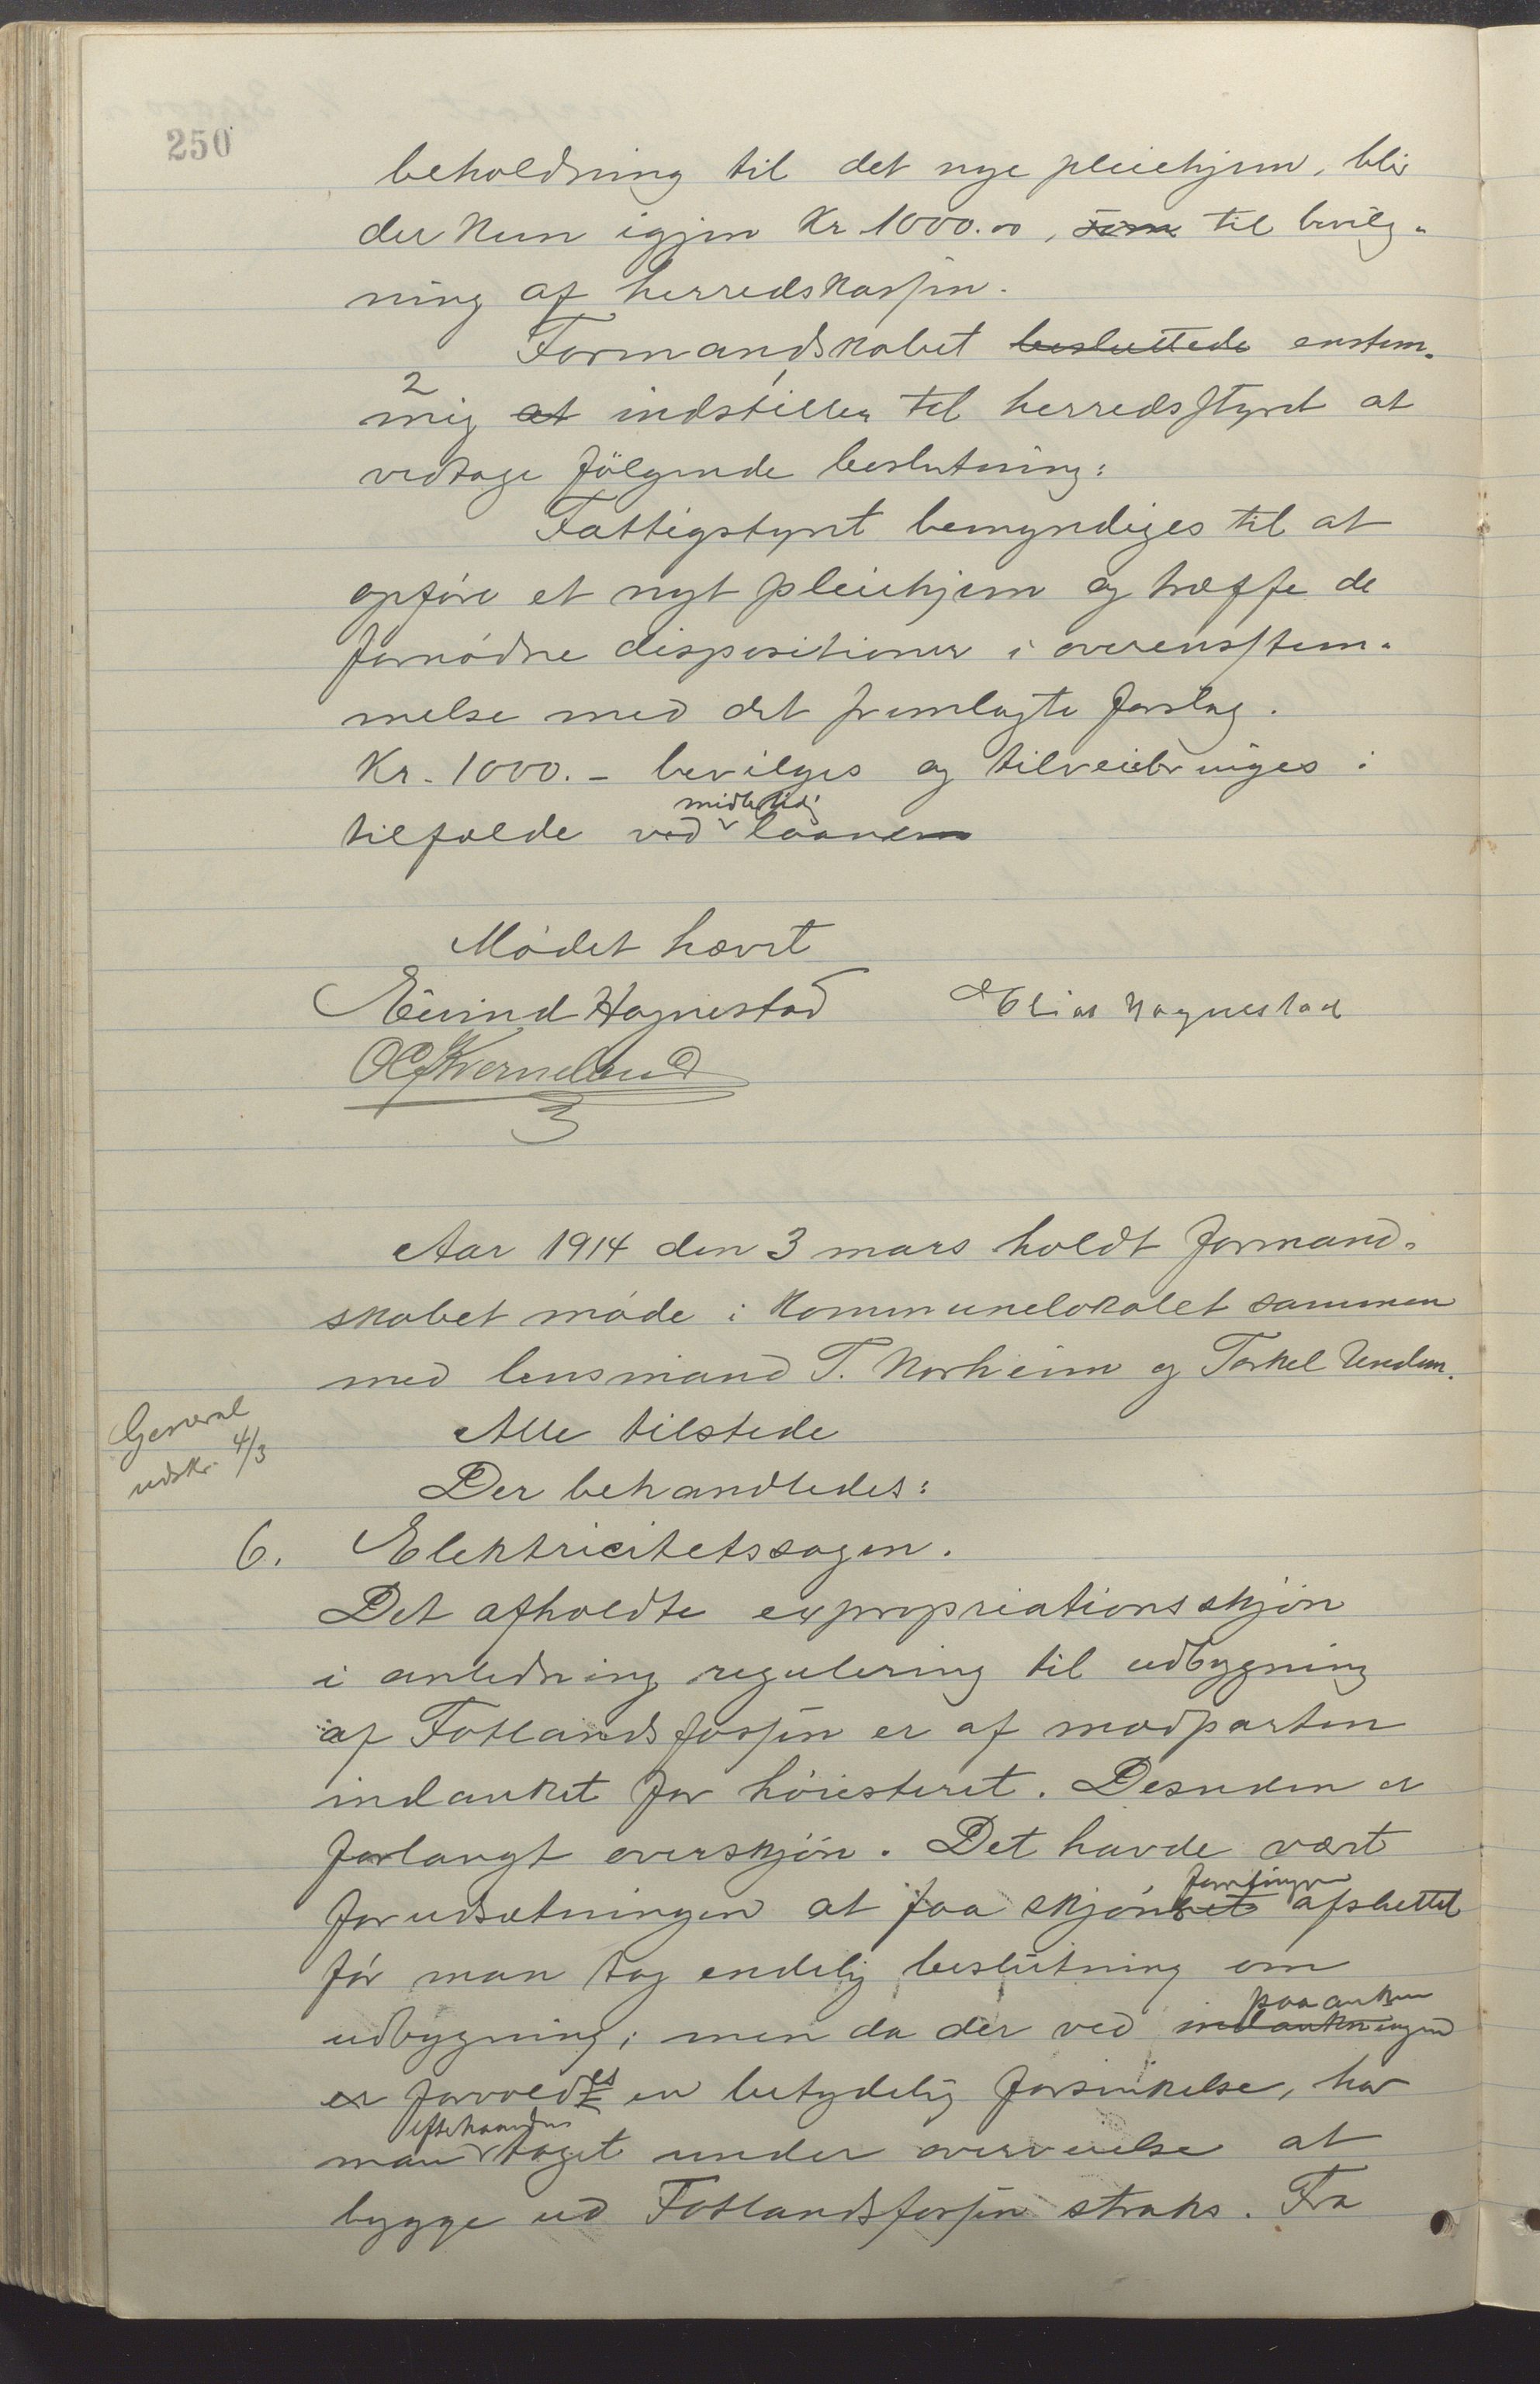 250
beholdning til det nye pleiehjem, blir
der kun igjen Kr 1000.00, som til bevilg-
ning af herredskassen.
Formandskabet besluttede enstem-
2
mig at indstiller til herredsstyret at
vedtage følgende beslutning:
Fattigstyret bemyndiges til at
opføre et nyt pleiehjem og træffe de
fornødne dispositioner i overensstem-
melse med det fremlagte forslag.
Kr. 1000.- bevilges og tilveiebringes i
midlertidig
tilfælde ved laan
Mødet hævet
Eivind Hognestad Elias Hognestad
O. Kverneland
Aar 1914 den 3 mars holdt formand-
skabet møde i kommunelokalet sammen
med lensmand T. Norheim og Torkel Undem.
General
udskr. 4/3
Alle tilstede
Der behandledes:
6. Elektricitetssagen.
Det afholdte expropriationsskjøn
i anledning regulering til udbygning
af Fotlandsfossen er af modparten
indanket for høiesteret. Desuden er
forlangt overskjøn. Det havde vært
forudsætningen at faa skjønnet afsluttet
før man tog endelig beslutning om
paa anken
udbygning; men da der ved indankningen
er forvoldes en betydelig forsinkelse, har
efterhaanden
man taget under overveielse at
bygge ud Fotlandsfossen straks. Fra